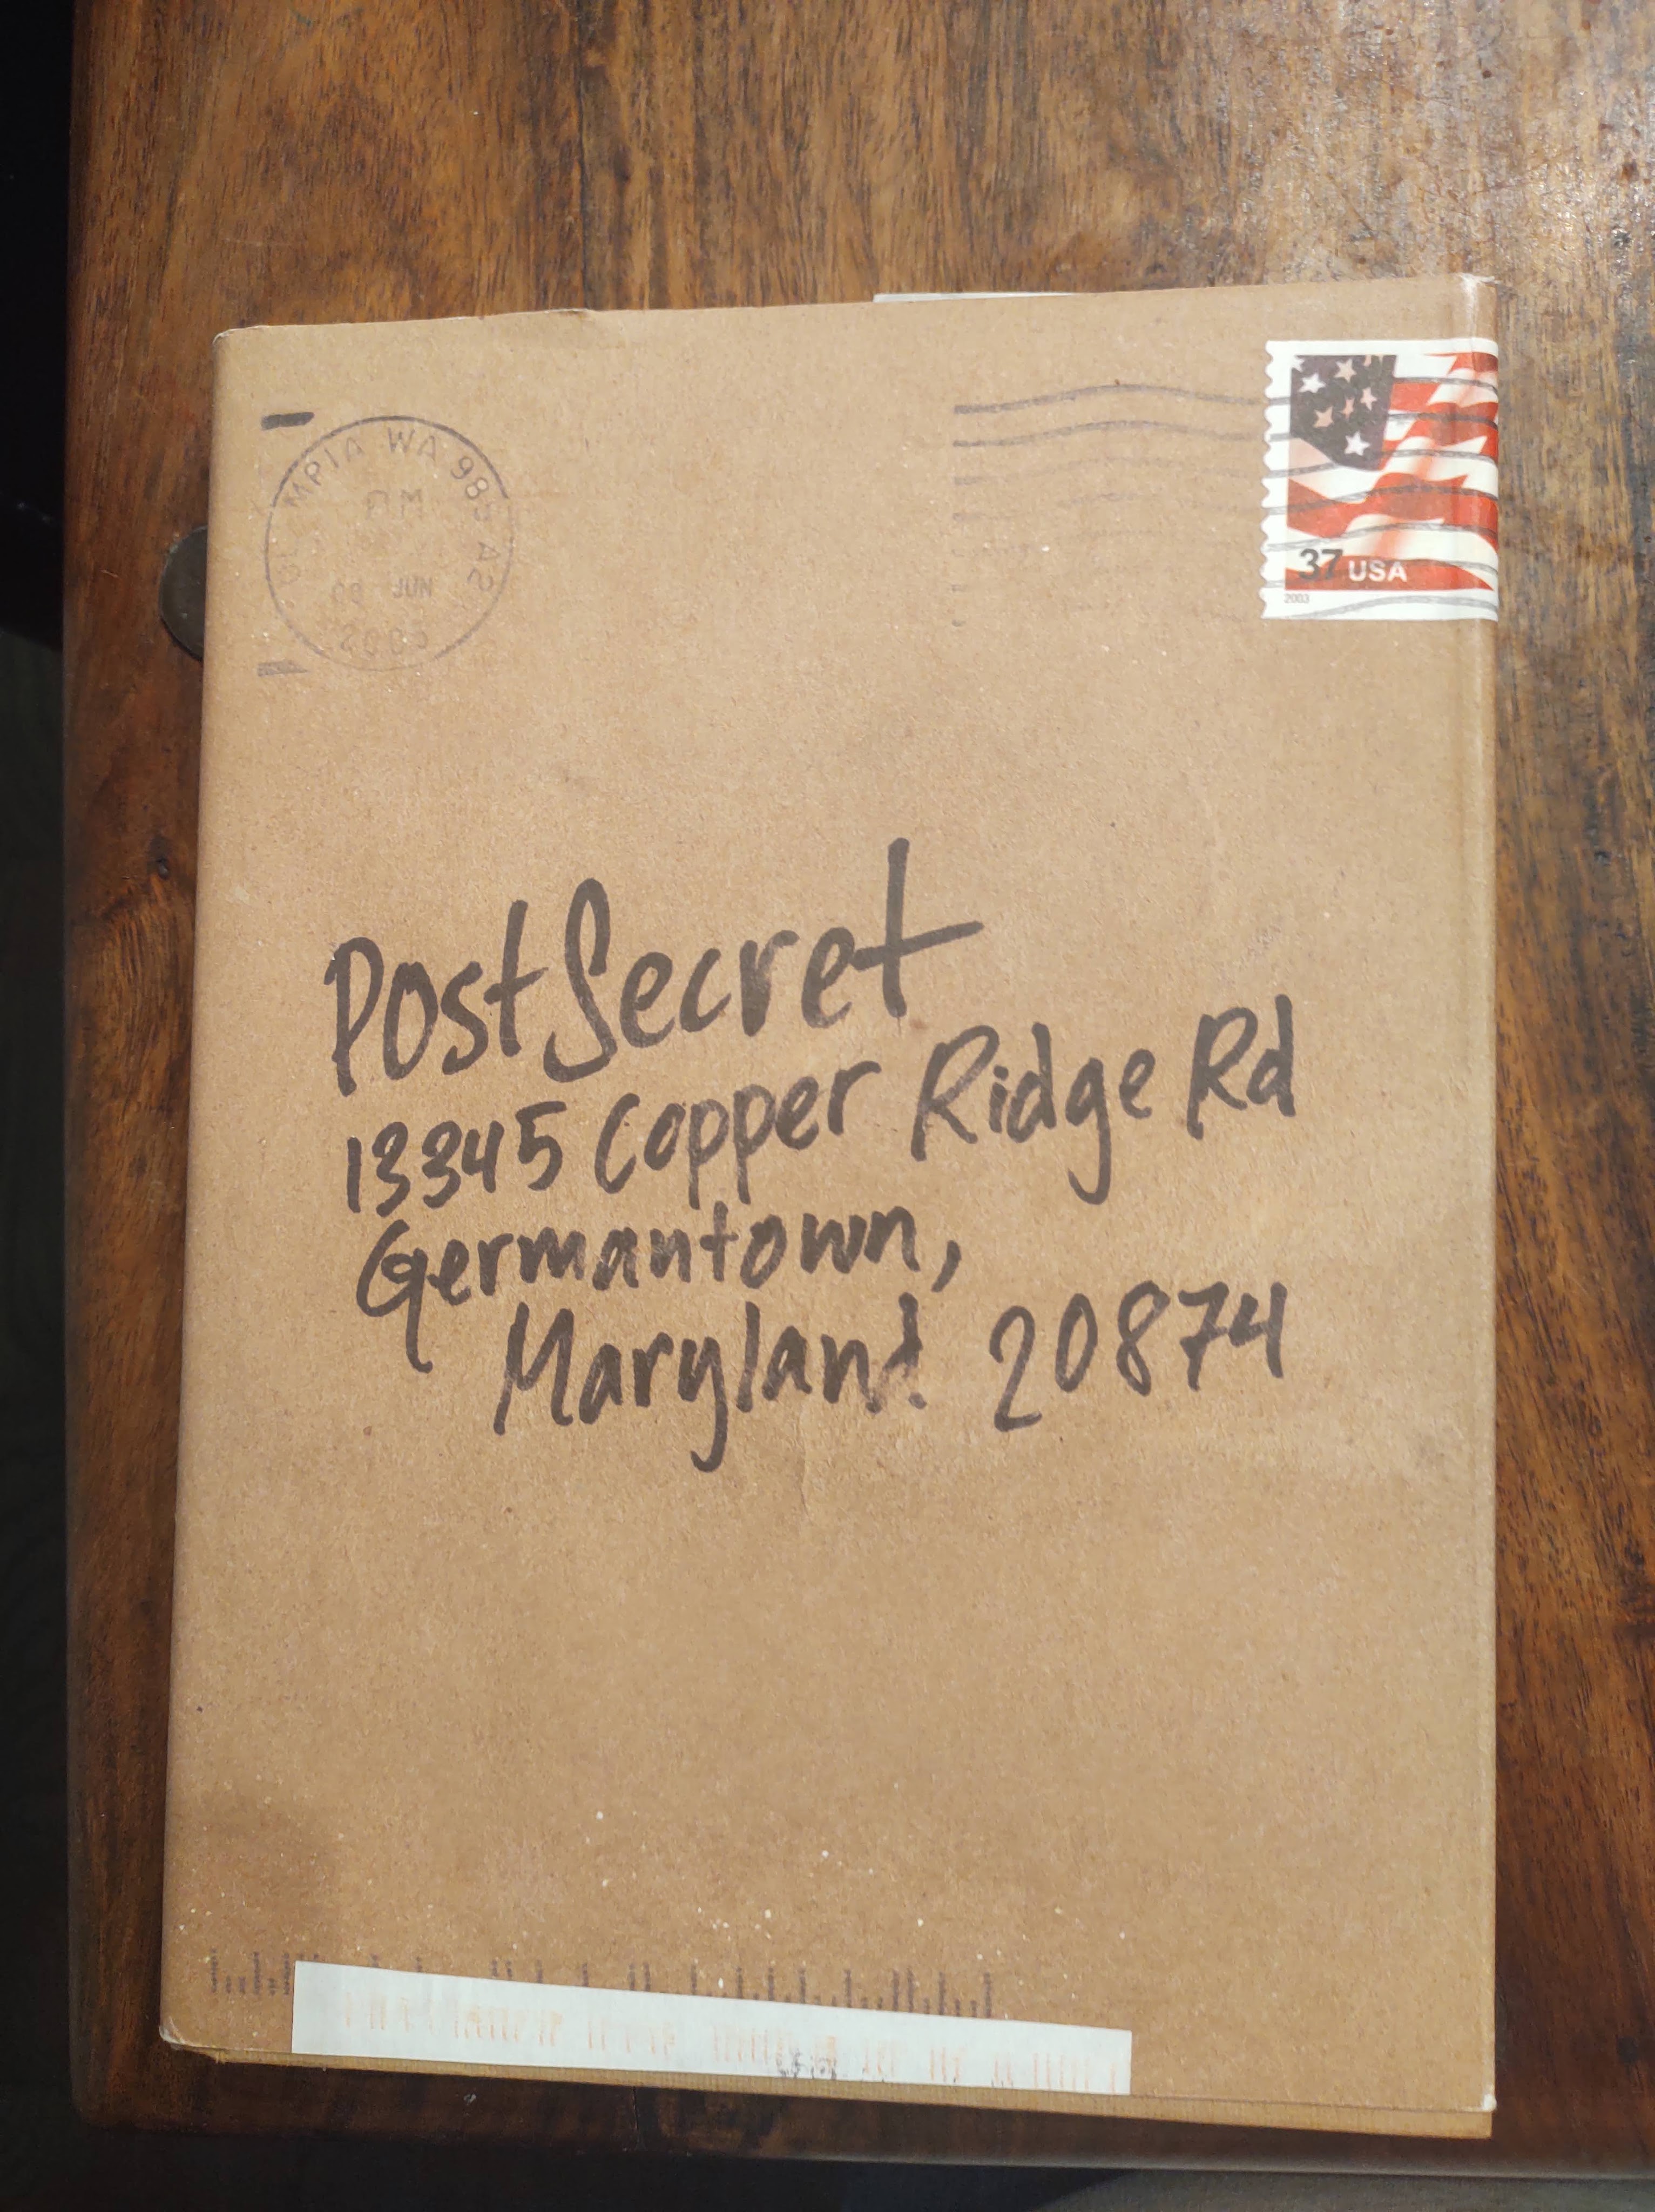 OLYMPIA WA 985 A2
PM
02 JUN
2005
37 USA
2003
PostSecret
13345 Copper Ridge Rd
Germantown,
Maryland 20874